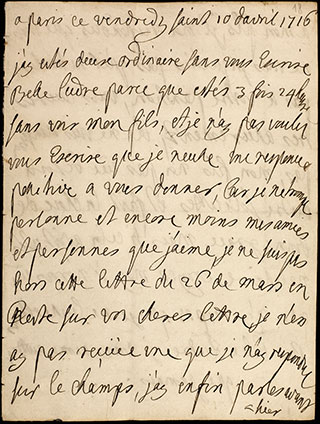 a paris ce vendredy saint 10 davril 1716
jay estés deux ordinaire sans vous Escrire
Belle ludre parce que estés 3 fois 24
sans voir mon fils, et je nay pas voulu
vous Escrire que je neuse une responce
positive a vous donner, Car je ne
personne et encore moins mes amies
et personnes que jaime, je ne suis pas
hors cette lettre du 26 de mars en
Reste sur vos cheres lettre, je nen
ay pas receüe une que je nay respondu
sur le champs, jay enfin parles
a hier